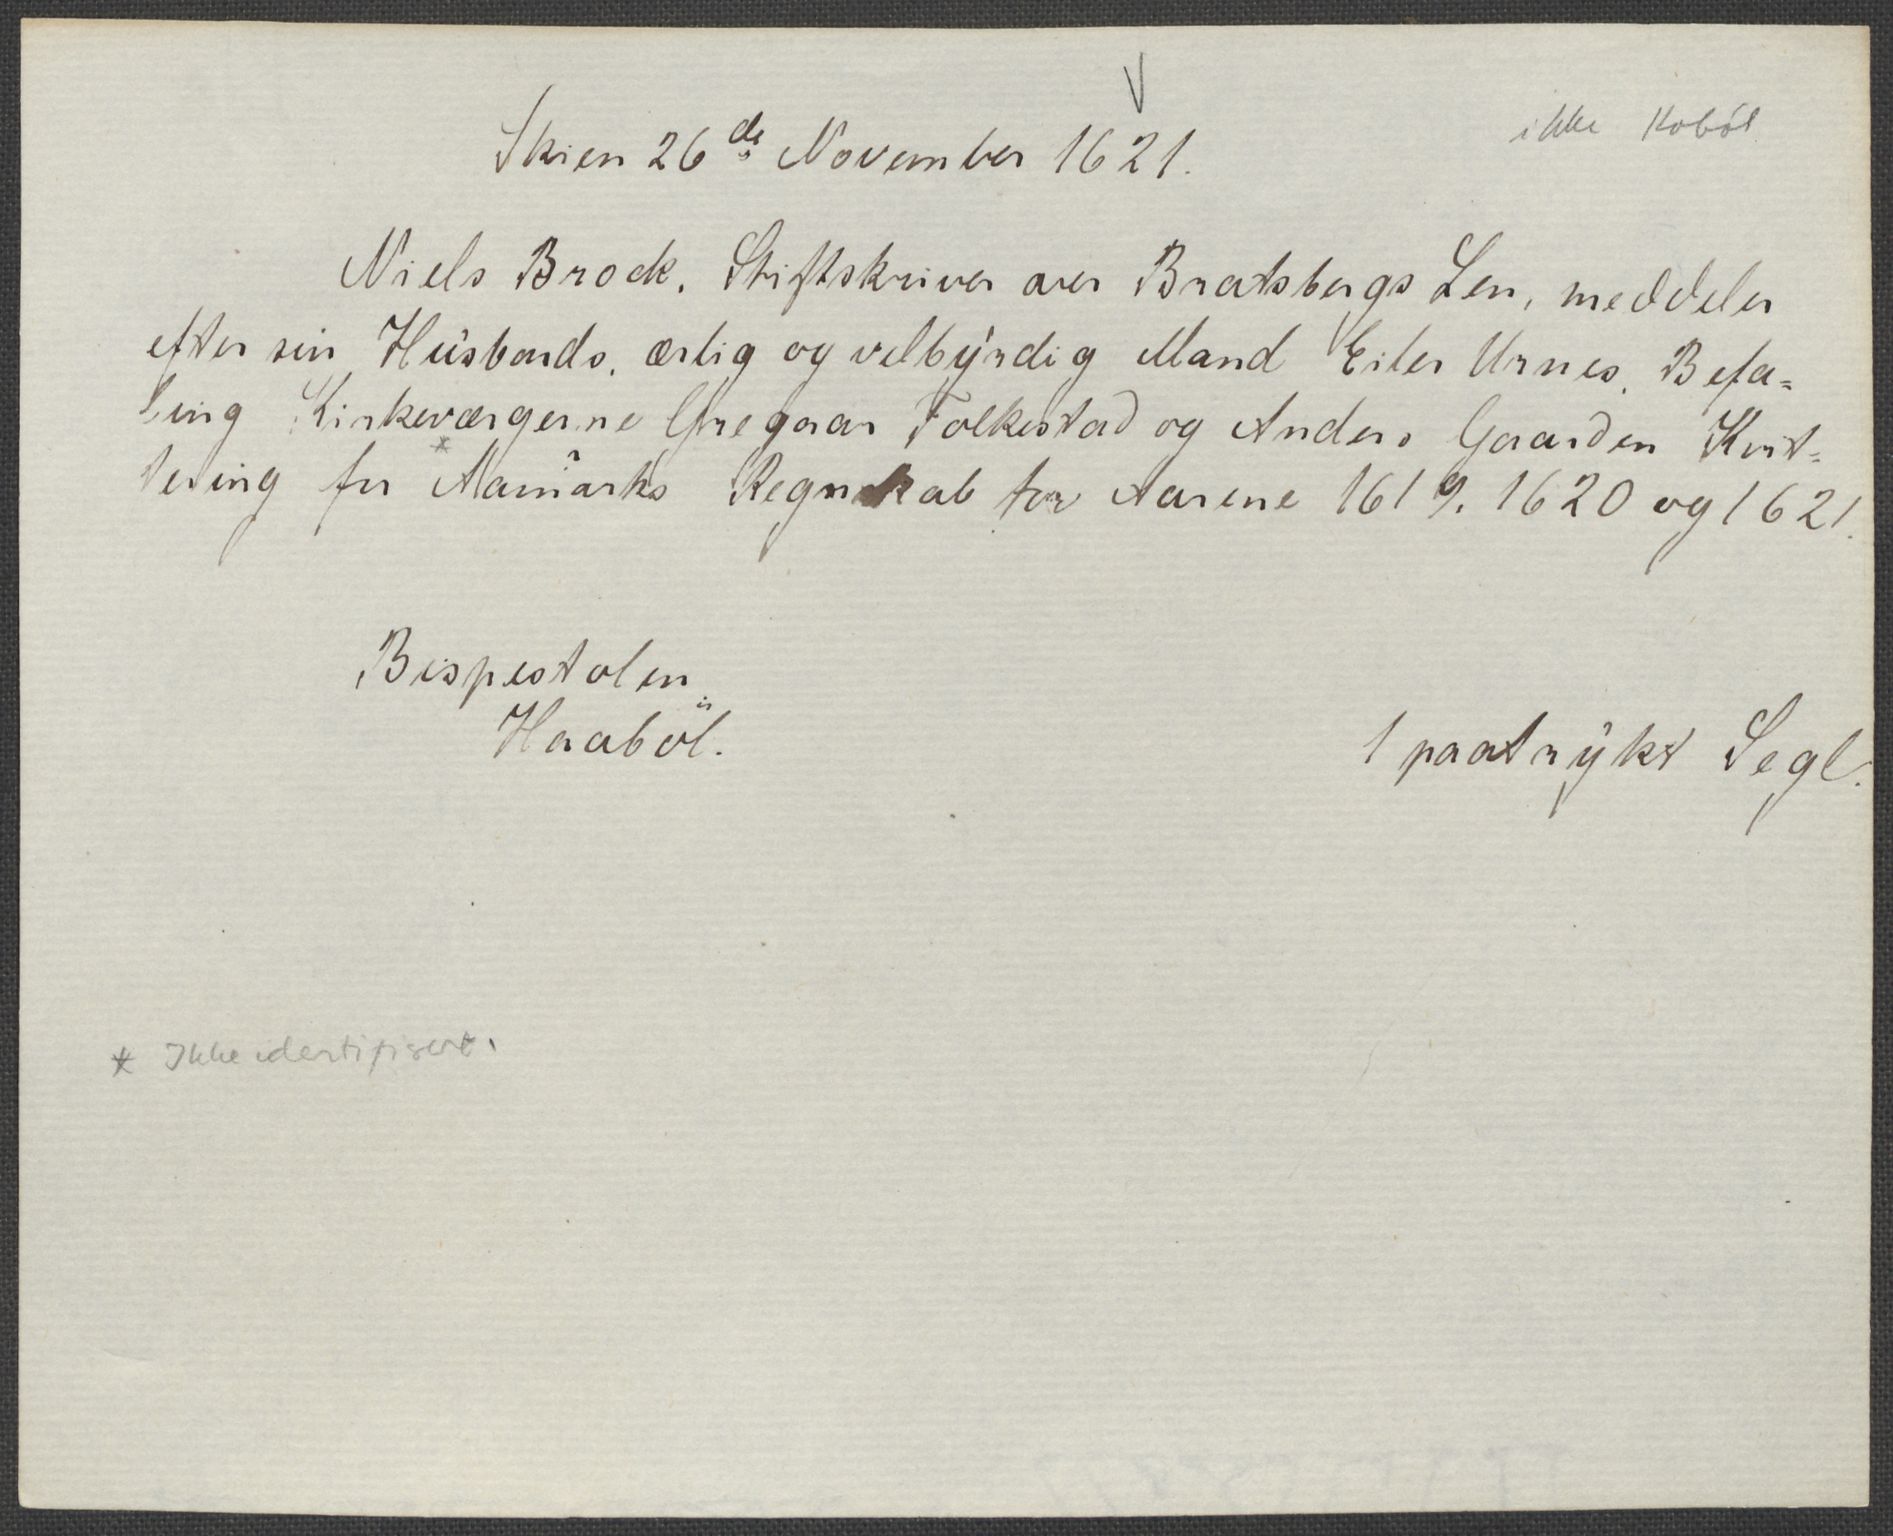 V
ikke Kobøl
Skien 26de November 1621.
Niels Brock, Stiftskriver over Bratsbergs Len, meddeler
efter sin Husbonds, ærlig og velbyrdig Mand Eiler Urnes, Befa=
ling Kirkeværgerne Gregaar Folkestad og Anders Gaarden Kvit=
tering for *Aamarks Regnskab for Aarene 1619, 1620 og 1621.
Bispestolen
Haaböl.
1 paatrykt Segl.
* Ikke identifisert.